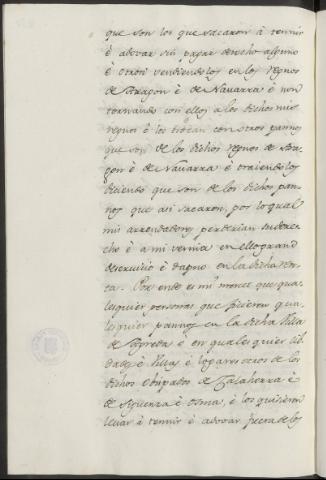 que son los que sacaron à tennir
è adovar sin pagar derecho alguno
è otrosi vendiendolos en los regnos
de Aragon è de Navarra è non
tornando con ellos a los dichos mis
regnos è los trocan con otros pannos
que son de los dichos regnos de Ara-
gon è de Navarra è traiendolos
diciendo que son de los dichos pan-
nos que asi sacaron, por lo qual
mis arrendadores perderian su dere-
cho è a mi vernia en ello grand
deservicio è dapno en la dicha ren-
ta. Por ende es mi merced que qua-
lesquier personas que ficieren qua-
lesquier pannos en la dicha Villa
de Agreda è en qualesquier Cib-
dades è Villas è logares otros de los
dichos Obispados de Calahorra è
de Siguenza è Osma, è los quisieren
levar à tennir è adovar fuera de los